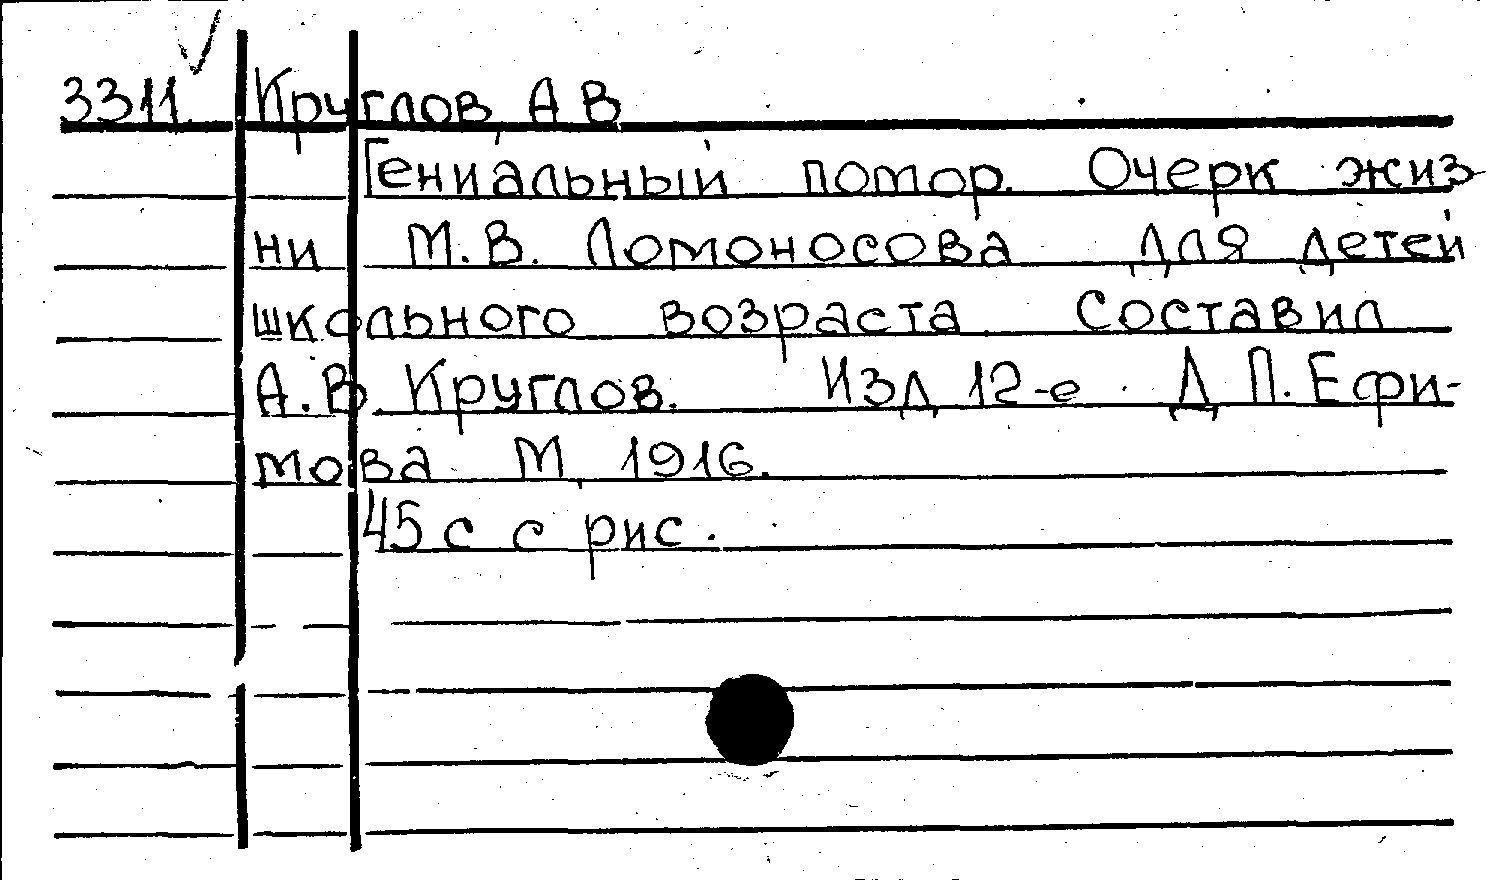 3311. Круглов А В
Гениальный помор. Очерк жиз
ни М.В. Ломоносова для детей
школьного возраста Составил
А.В. Круглов. Изд 12-е Д П. Ефи-
мова М, 1916.
45 с с рис.